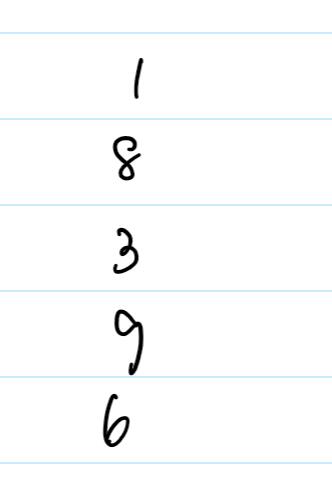 1
8
3
9
6